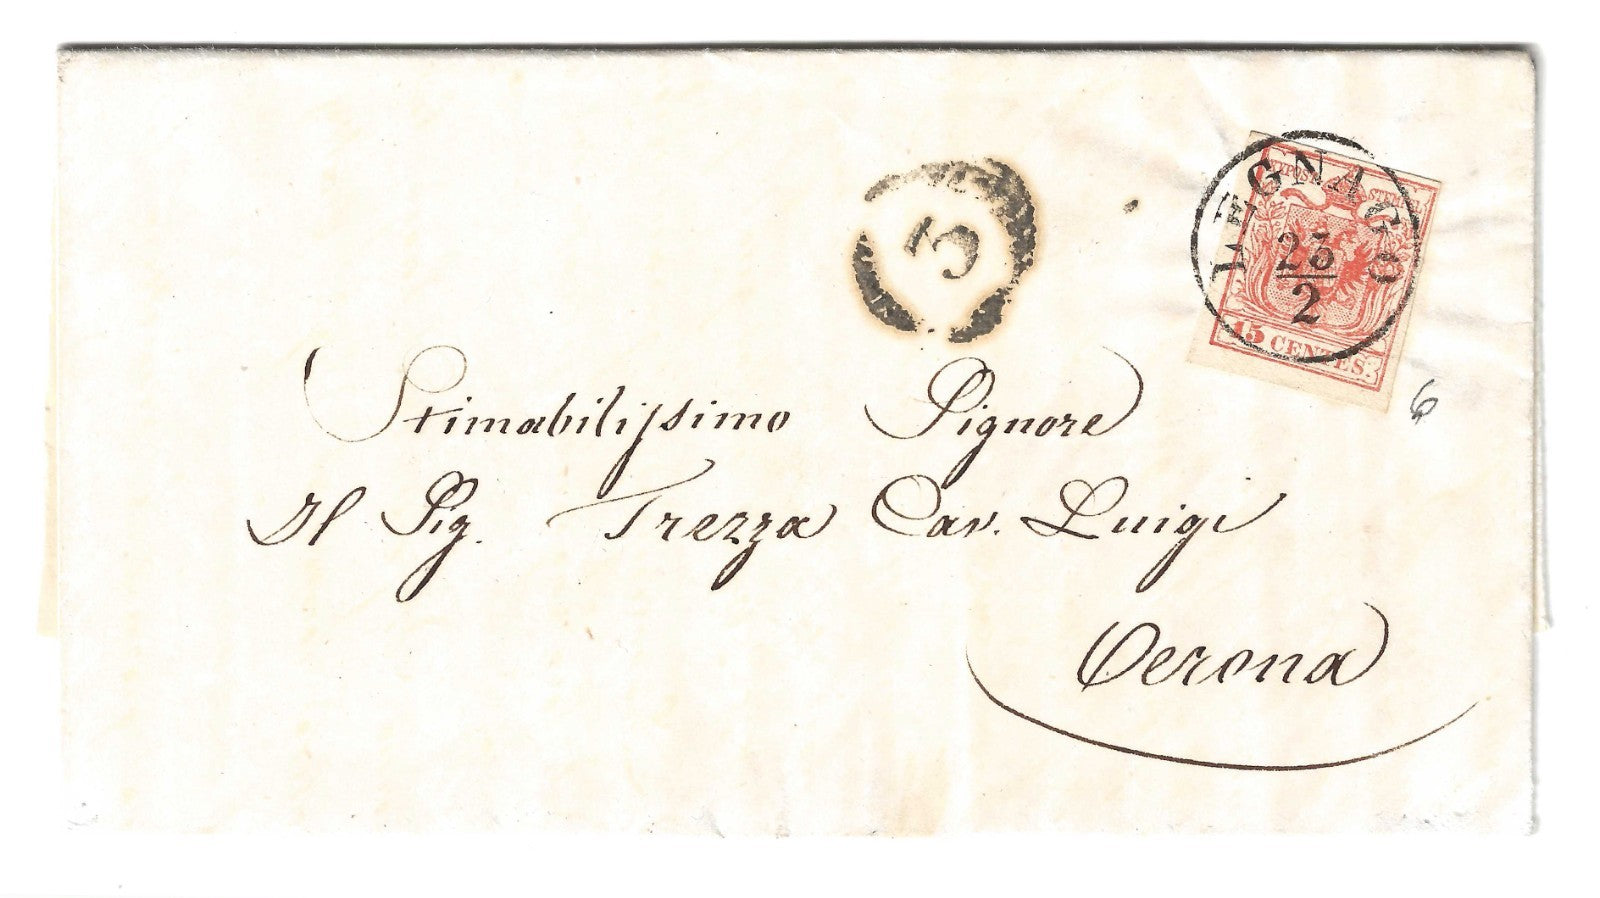 3
LEGNAGO
23
2
KK POST STEMPEL
15 CENTES.
6
Stimabilissimo Signore
Il Sig. Trezza Cav. Luigi
Verona